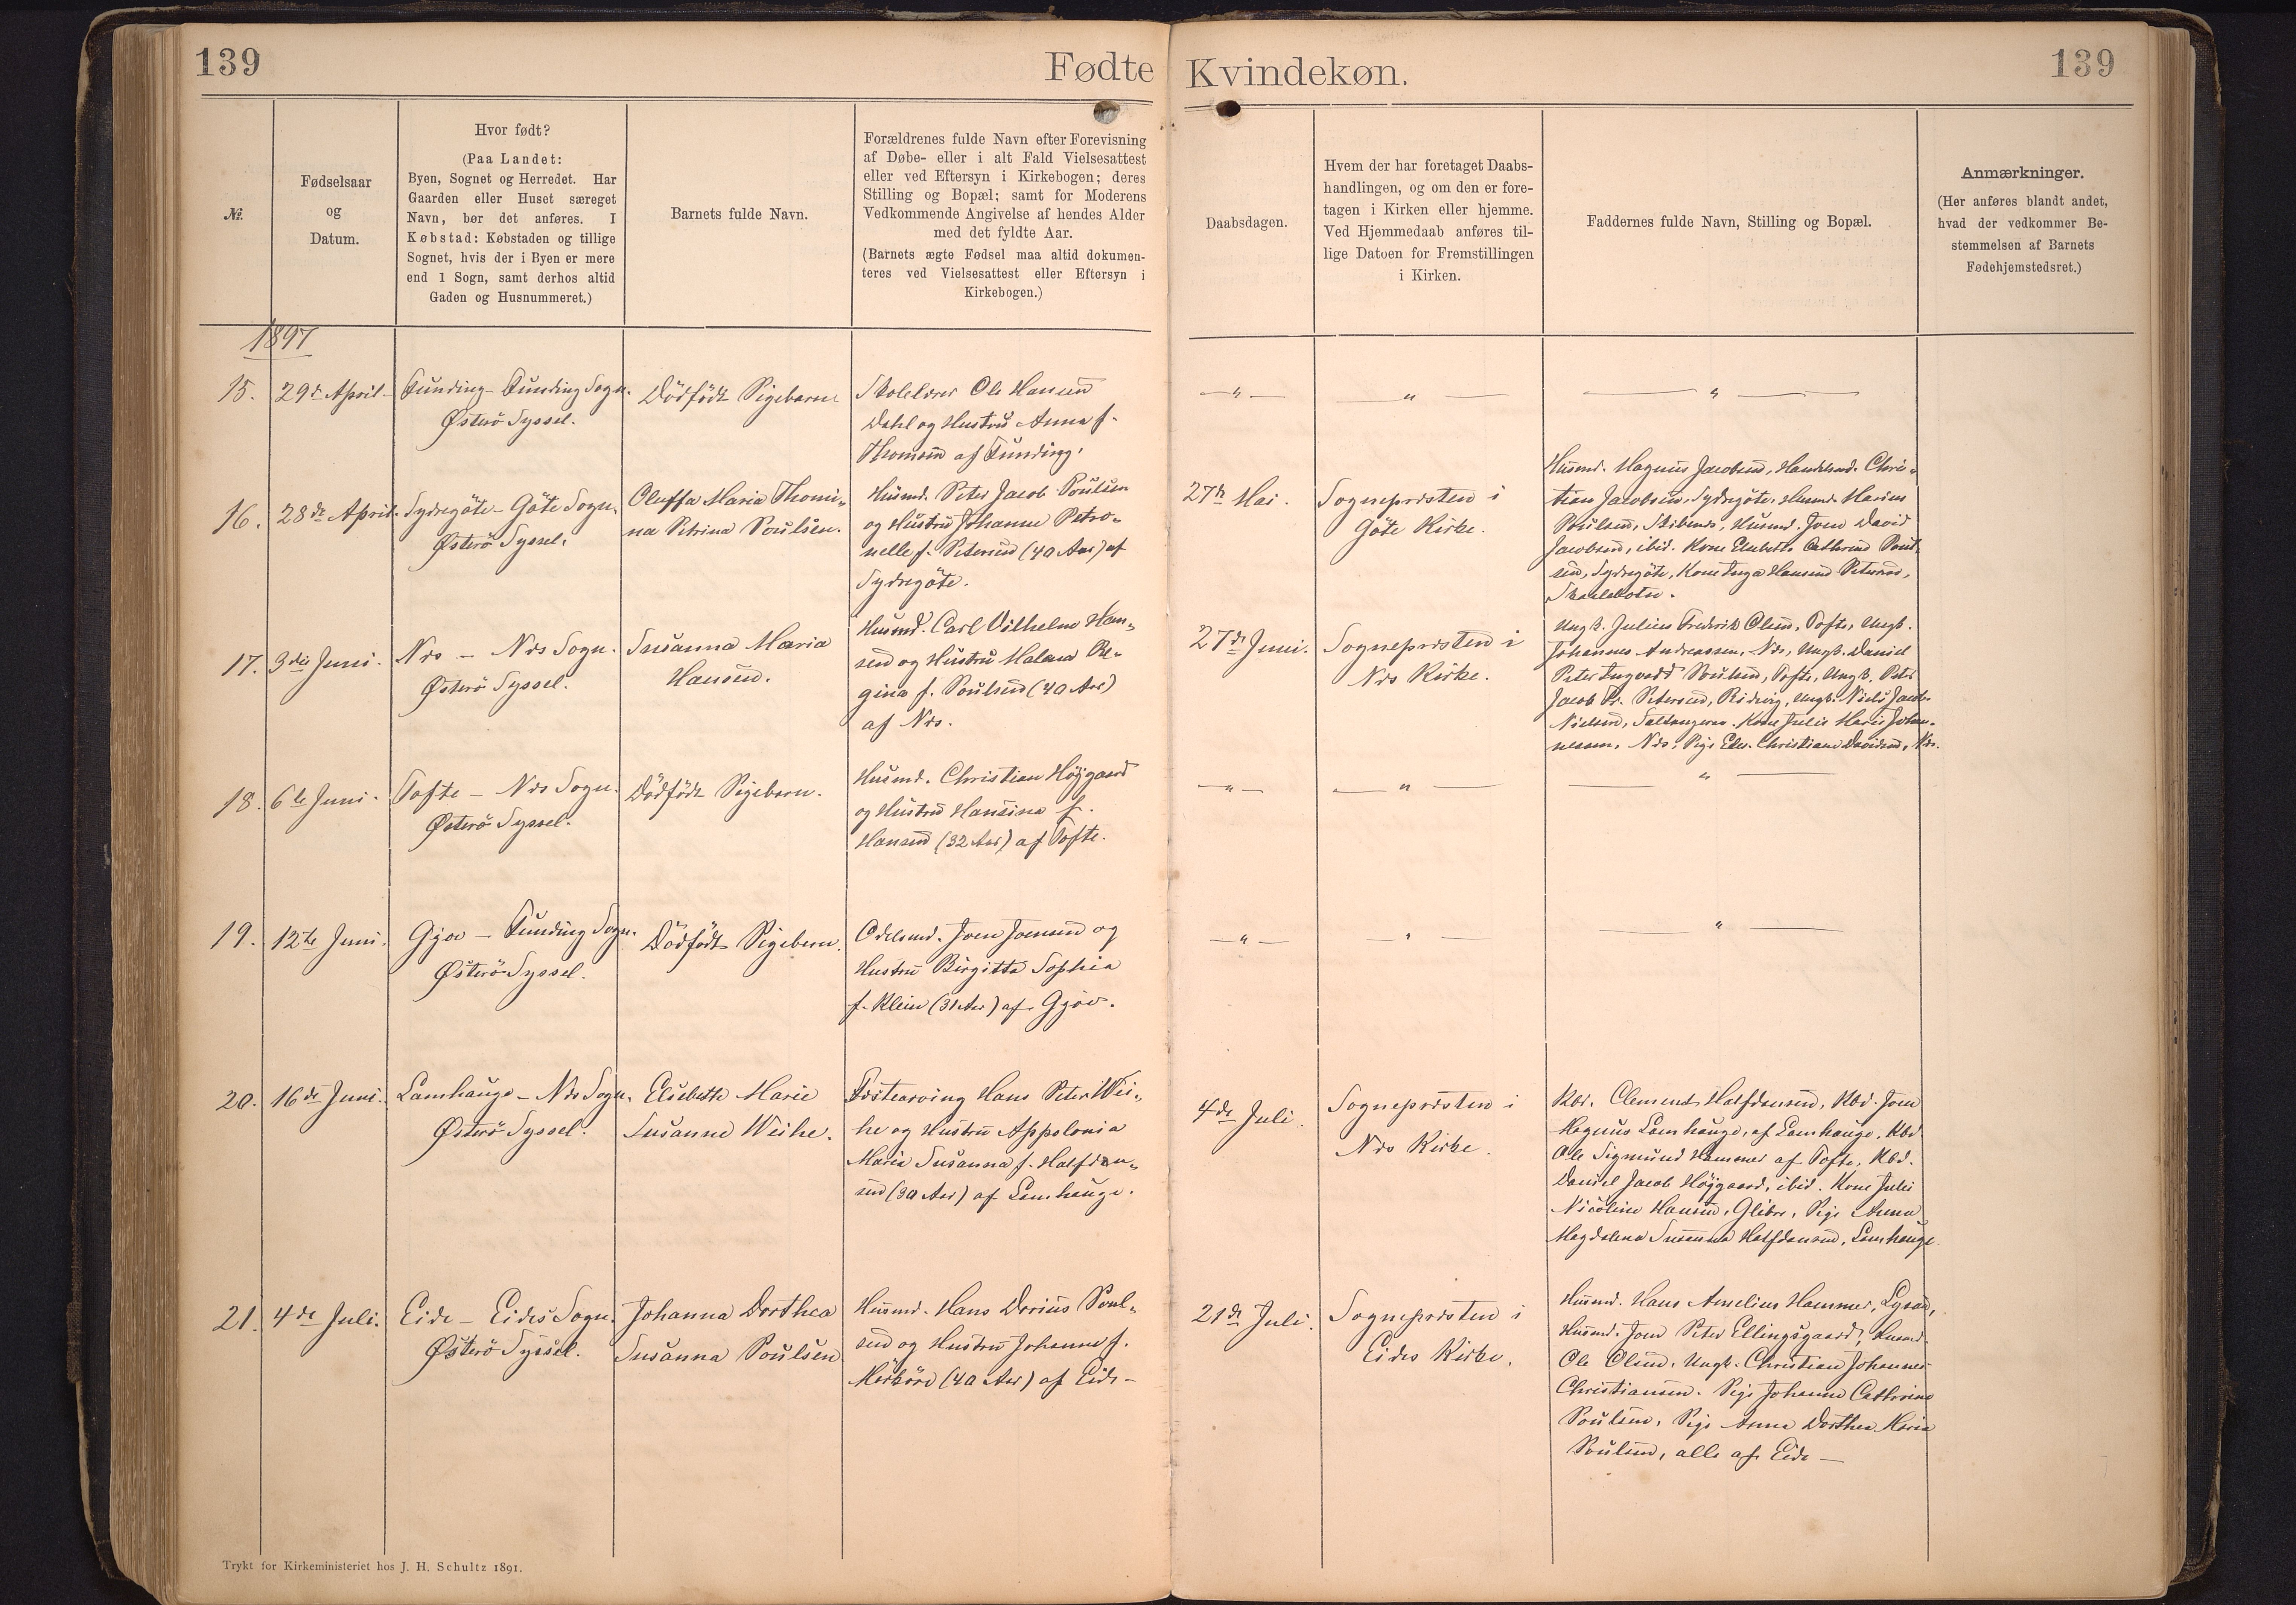 139
Fødte
Nr.
Fødselsaar
og
Datum.
Hvor født?
(Paa Landet:
Byen, Sognet og Herredet. Har
Gaarden eller Huset særeget
Navn, bør det anføres. I
Købstad: Købstaden og tillige
Sognet, hvis der i Byen er mere
end 1 Sogn, samt derhos altid
Gaden og Husnummeret.)
Barnets fulde Navn.
Forældrenes fulde Navn efter Forevisning
af Døbe- eller i alt Fald Vielsesattest
eller ved Eftersyn i Kirkebogen; deres
Stilling og Bopæl; samt for Moderens
Vedkommende Angivelse af hendes Alder
med det fyldte Aar.
(Barnets ægte Fødsel maa altid dokumen-
teres ved Vielsesattest eller Eftersyn i
Kirkebogen.)
1897
15.
29de April
Funding - Funding Sogn.
Østerö Syssel.
Dödfödt Pigebarn
Skolelærer Ole Hansen
Dahl og Hustru Anna f.
Thomsen af Funding.
16.
28de April.
Sydregöte - Göte Sogn.
Østerö Syssel.
Oluffa Maria Thomi-
na Petrina Poulsen.
Husmd. Peter Jacob Poulsen
og Hustru Johanne Petro-
nelle f. Petersen (40 Aar) af
Sydregöte.
17.
3die Juni.
Næs - Næs Sogn.
Østerö Syssel.
Susanna Maria
Hansen.
Husmd. Carl Vilhelm Han-
sen og Hustru Malena Re-
gina f. Poulsen (40 Aar)
af Næs.
18.
6te Juni.
Tofte - Næs Sogn.
Østerö Syssel.
Dödfödt Pigebarn.
Husmd. Christian Højgaard
og Hustru Hansina f.
Hansen (32 Aar) af Tofte.
19.
12te Juni.
Gjov - Funding Sogn.
Østerö Syssel.
Dödfödt Pigebarn.
Odelsmd. Joen Joensen og
Hustru Birgitta Sophia
f. Klein (31 Aar) af Gjov.
20.
16de Juni.
Lamhauge - Næs Sogn.
Østerö Syssel.
Elsebeth Marie
Susanne Weihe.
Fæstearving Hans Peter Wei-
he og Hustru Appolonia
Maria Susanna f. Halfdan-
sen (30 Aar) af Lamhauge.
21.
4de Juli.
Eide - Eides Sogn.
Østerö Syssel.
Johanna Dorthea
Susanna Poulsen
Husmd. Hans Darius Poul-
sen og Hustru Johanne f.
Mörköre (40 Aar) af Eide -
Trykt for Kirkeministeriet hos J. H. Schultz 1891.
Kvindekøn.
139
Daabsdagen.
Hvem der har foretaget Daabs-
handlingen, og om den er fore-
tagen i Kirken eller hjemme.
Ved Hjemmedaab anføres til-
lige Datoen for Fremstillingen
i Kirken.
Faddernes fulde Navn, Stilling og Bopæl.
Anmærkninger.
(Her anføres blandt andet,
hvad der vedkommer Be-
stemmelsen af Barnets
Fødehjemstedsret.)
— " —
— " —
— " —
27de Mai.
Sognepræsten i
Göte Kirke.
Husmd. Magnus Jacobsen, Handelsmd. Chri-
tian Jacobsen, Sydregöte, Husmd. Marius
Poulsen, Husmd. Joen David
Jacobsen, ibid. Kone Elsebeth Cathrine Poul-
sen, Sydregöte, Kone Hansine Petersen,
27de Juni.
Sognepræsten i
Næs Kirke.
Ungk. Julius Frederik Olsen, Tofte, Ungk.
Johannes Andreassen, Næs, Ungk. Daniel
Peter Ingvard Poulsen, Tofte, Ungk. Peter
Jacob Fr. Petersen, Ridevig, Ungk. Niels Jacob
Nielsen, Saltangeren. Kone Julie Marie Johan-
nessen, Næs, Pige Christiane Davidsen, Næs.
— " —
— " —
— " —
— " —
— " —
— " —
4de Juli.
Sognepræsten i
Næs Kirke.
Kbd. Clement Halfdansen, Kbd. Joen
Magnus Lamhauge, af Lamhauge, Kbd.
Ole Sigmund Hammer af Tofte, Kbd.
Daniel Jacob Højgaard, ibid. Kone Julie
Nicoline Hansen, Glibre, Pige Anna
Magdalena Susanna Halfdansen, Lamhauge.
21de Juli.
Sognepræsten i
Eides Kirke.
Husmd. Hans Amelius Hammer,
Husmd. Joen Peter Ellingsgaard, Husmd.
Ole Olsen, Ungk. Christian Johannes
Christiansen. Pige Johanne Cathrine
Poulsen, Pige Anna Dorthea Maria
Poulsen, alle af Eide —